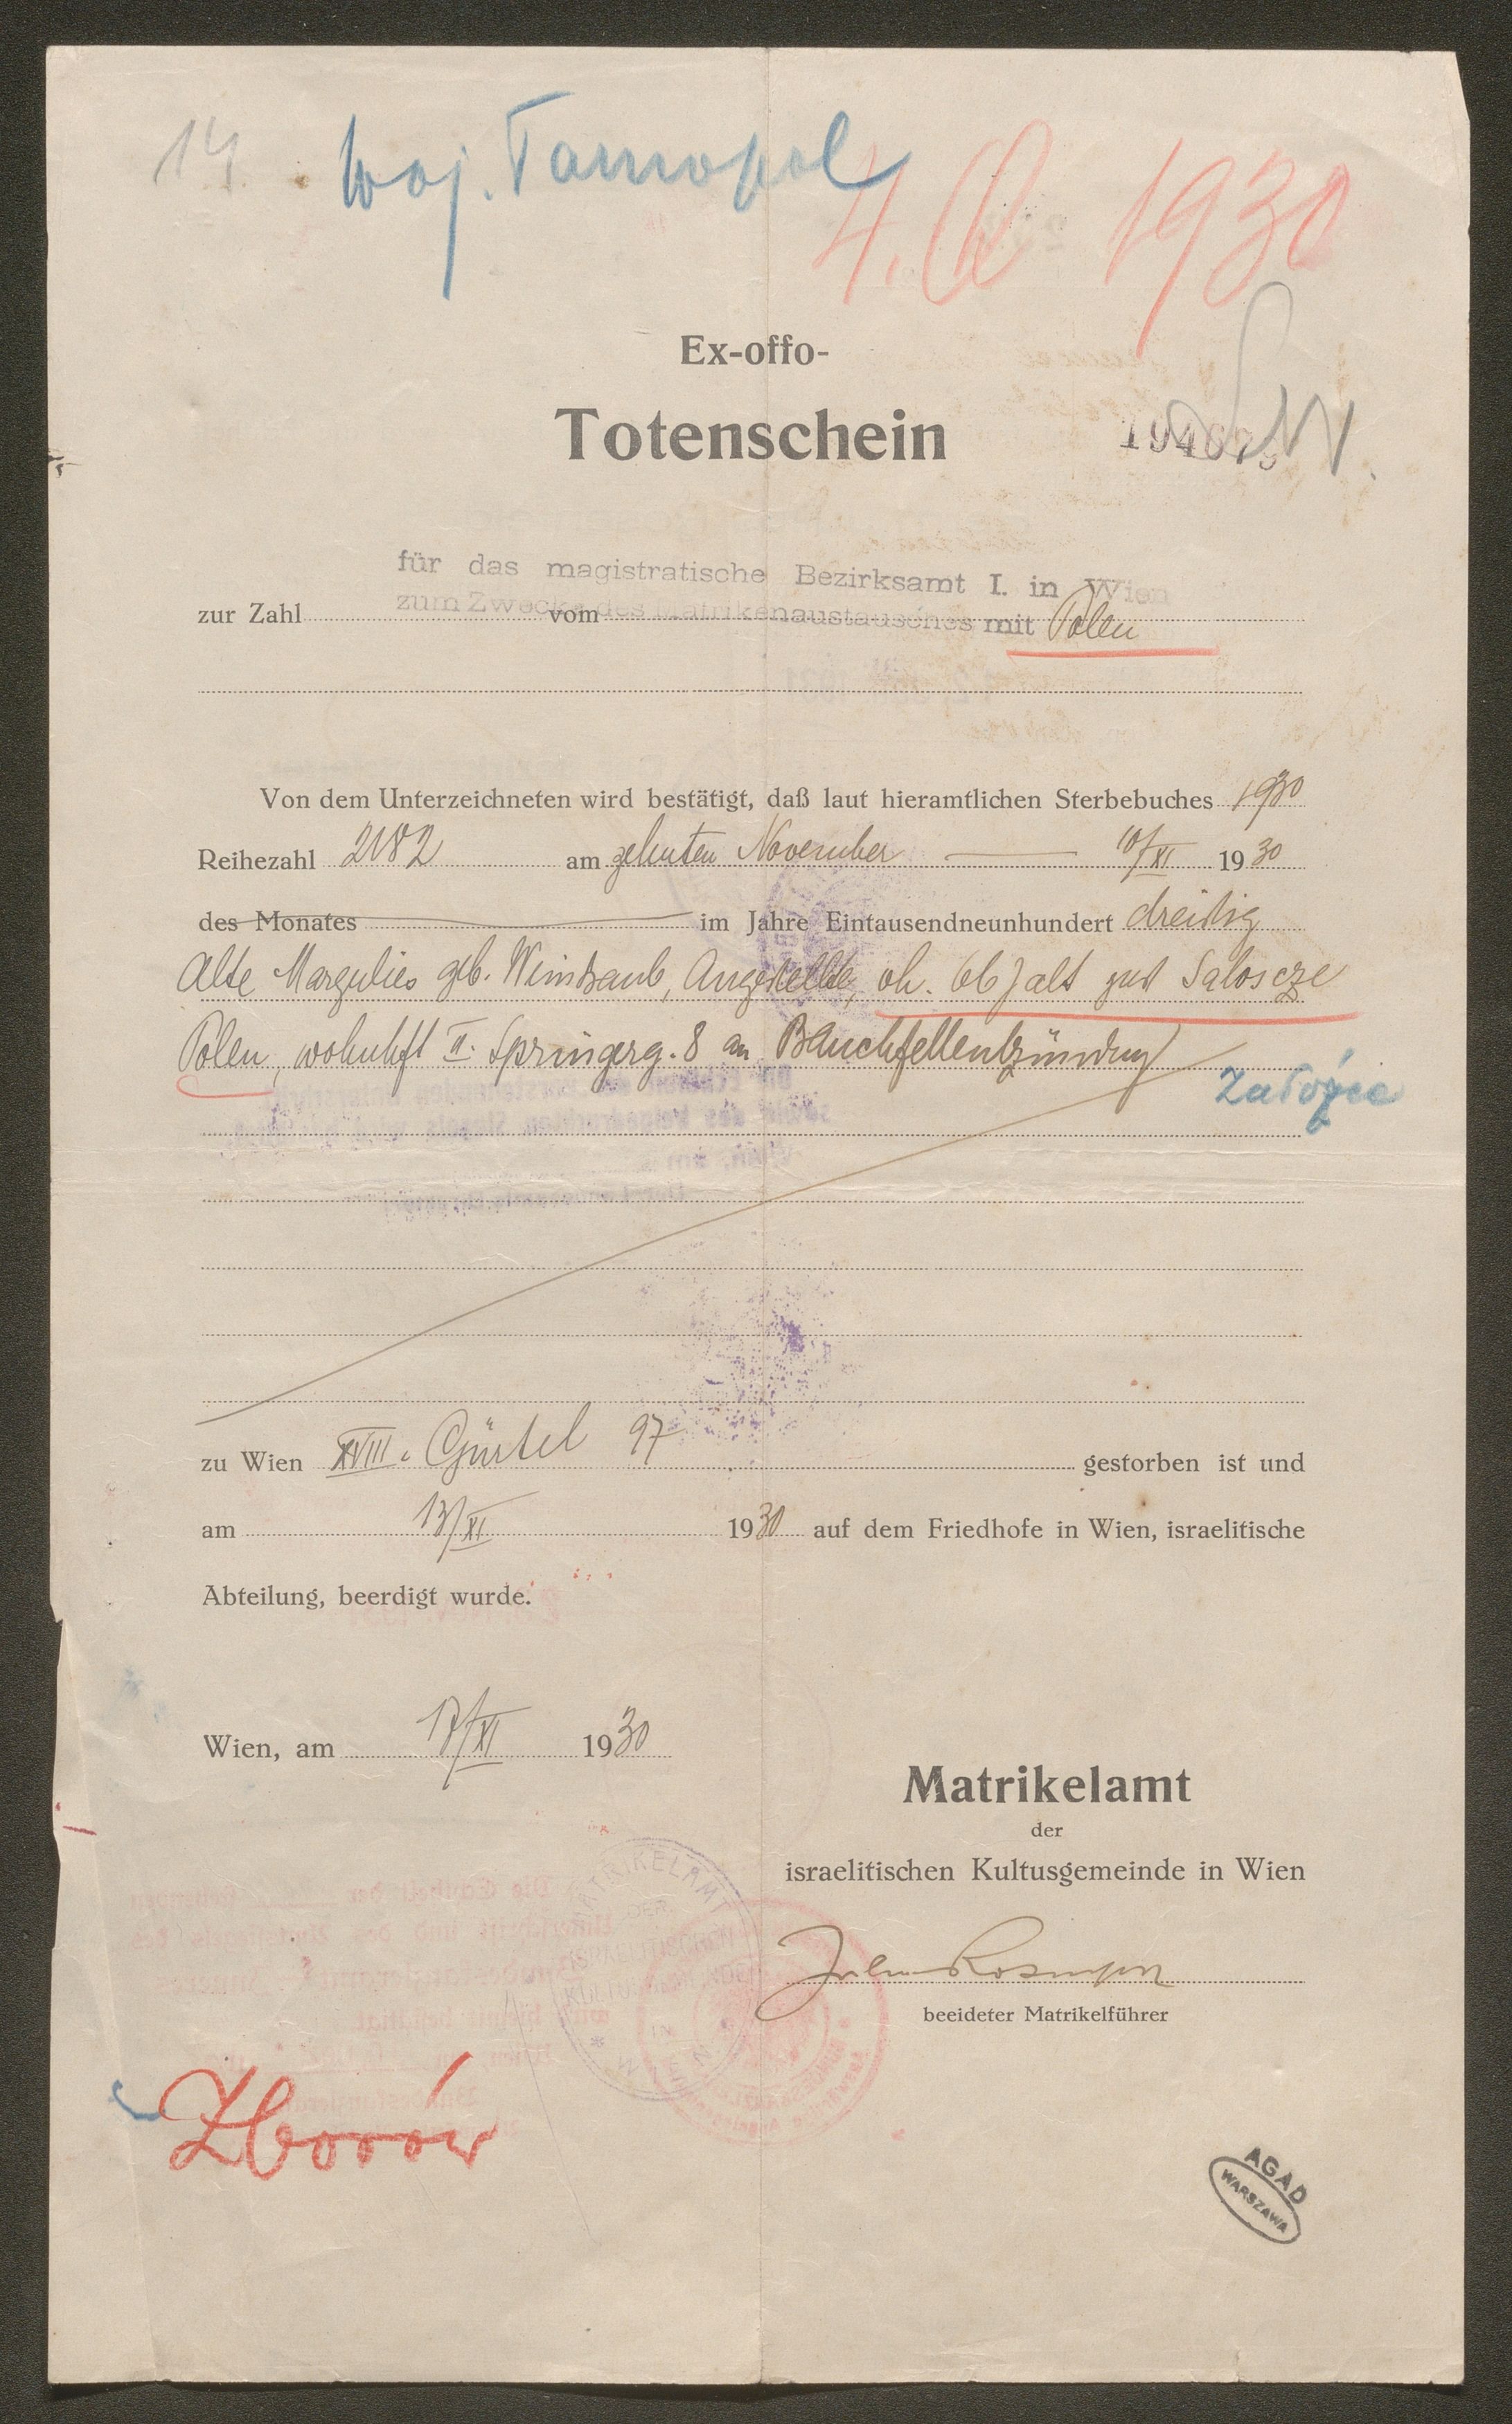 14 woj. Tarnopol
4. Q 1930
Ex-offo-
Totenschein
für das magistratische Bezirksamt I. in Wien
zum Zwecke des Matrikenaustausches mit Polen
zur Zahl vom
Von dem Unterzeichneten wird bestätigt, daß laut hieramtlichen Sterbebuches 1930
Reihezahl 2182 am zehnten November 10/XI 1930
des Monates im Jahre Eintausendneunhundert dreißig
Alte Margulies geb. Weintraub, Angestellte, vh. 66 J alt zust Saloscze
Polen, wohnhft II. Springerg. 8 an Bauchfellentzündung
Załoźce
zu Wien XVIII. Gürtel 97 gestorben ist und
am 13/XI 1930 auf dem Friedhofe in Wien, israelitische
Abteilung, beerdigt wurde.
Wien, am 17/XI 1930
Matrikelamt
der
israelitischen Kultusgemeinde in Wien
beeideter Matrikelführer
MATRIKELAMT
DER
ISRAELITISCHEN
WIEN
Zborów
AGAD
WARSZAWA